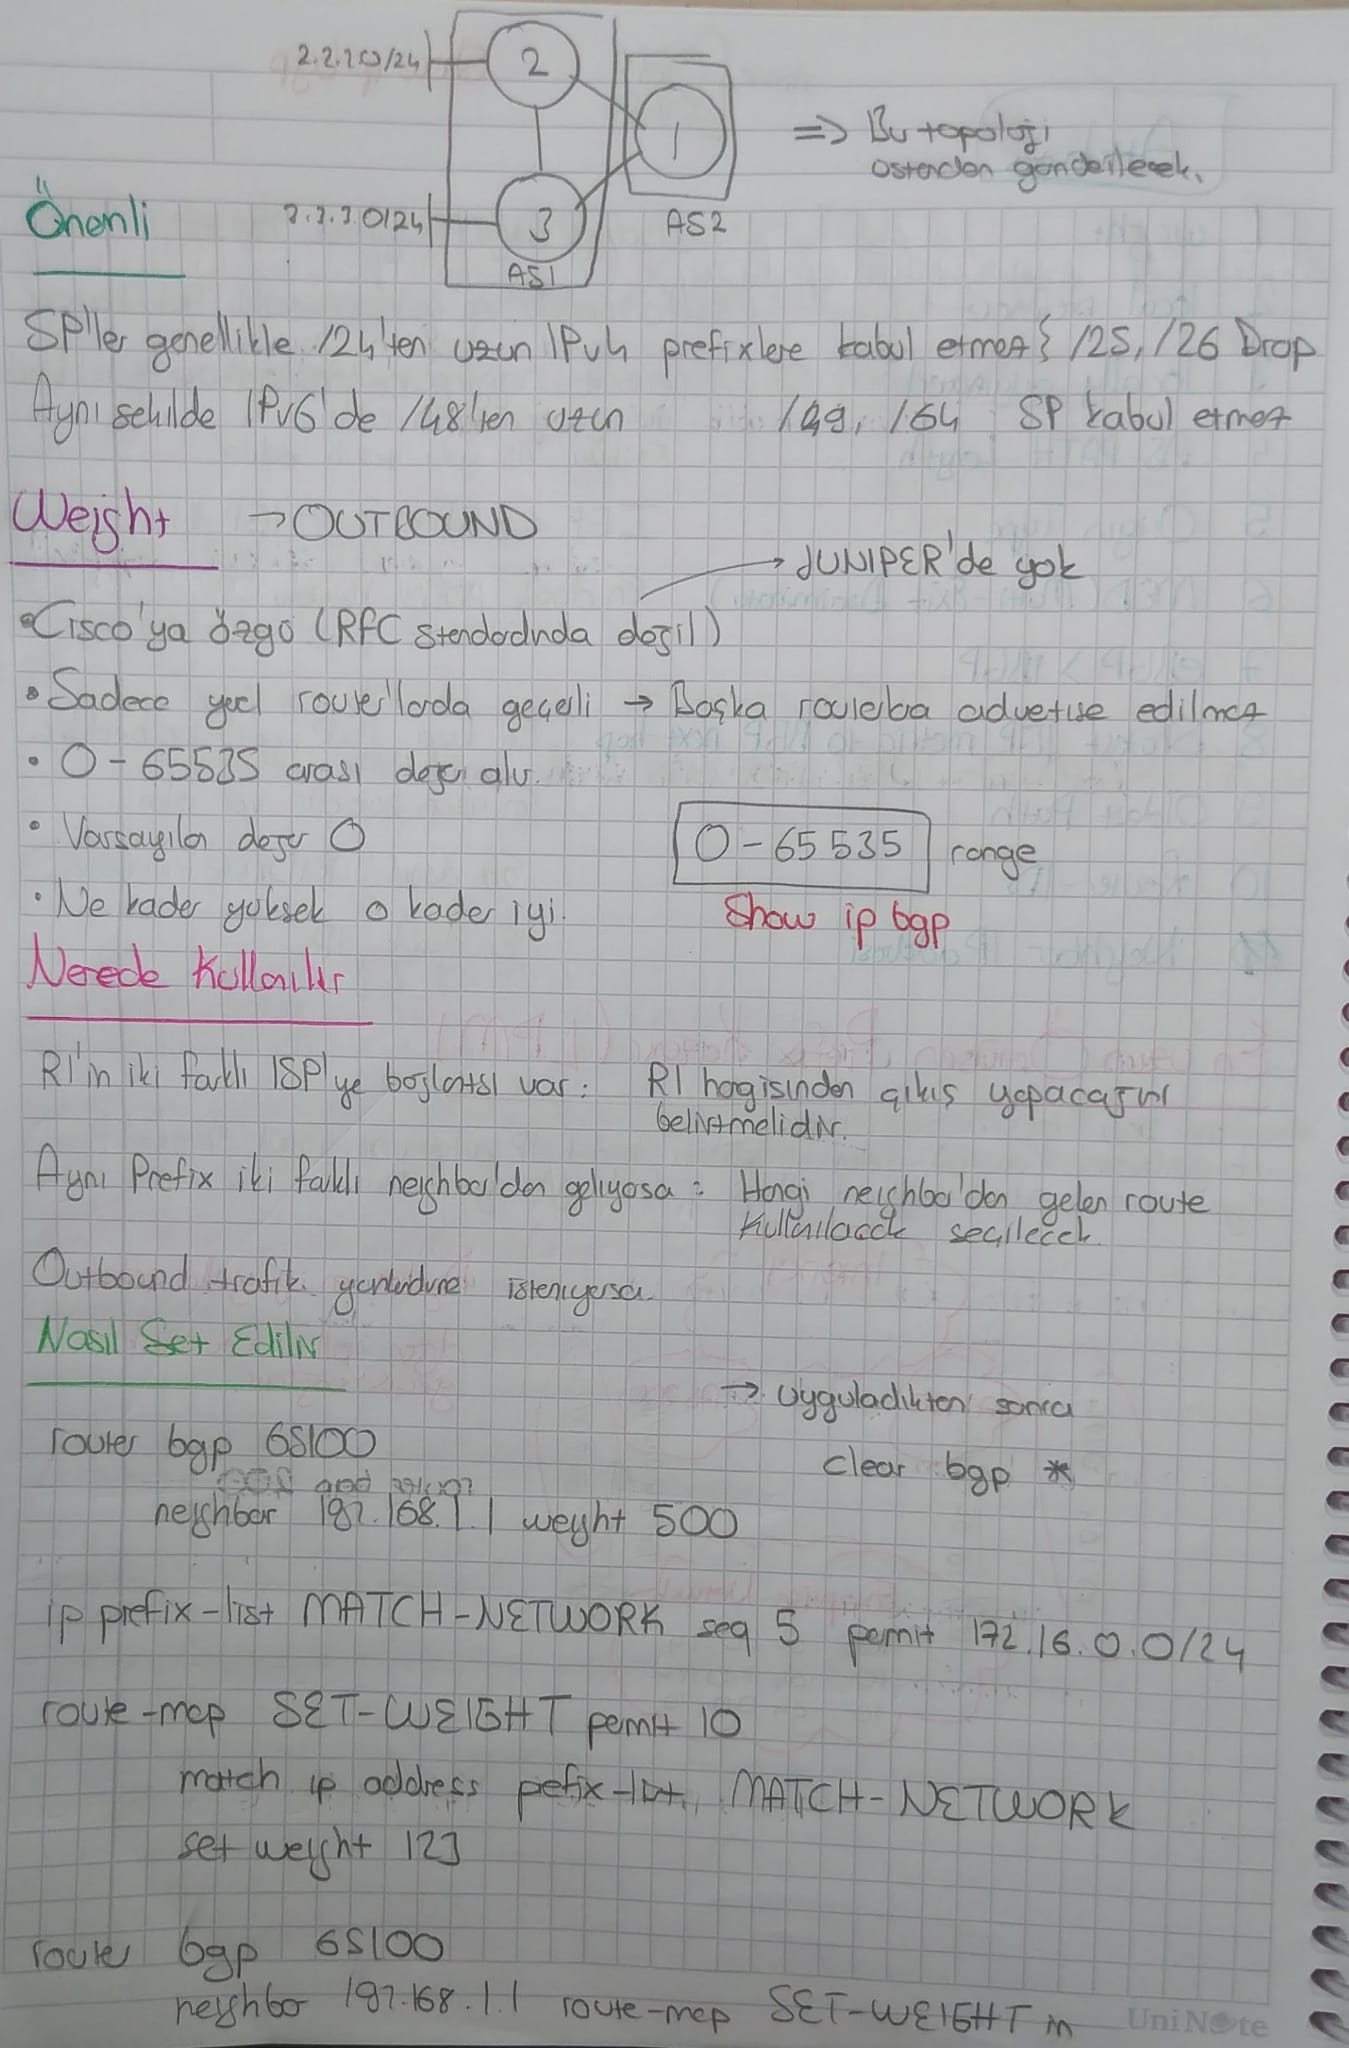 2.2.2.0/24
2
1
=> Bu topoloji
ostenden gönderilecek.
Önemli
3.3.3.0/24
3
AS2
AS1
SP'ler genellikle /24'ten uzun IPv4 prefixlere kabul etmez } /25, /26 Drop
Aynı sekilde IPv6'de /48'ten uzun /49, /64 SP kabul etmez
Weight → OUTBOUND
→ JUNIPER'de yok
• Cisco'ya özgü (RFC standadında değil)
• Sadece yerel router'larda geçerli → Başka routerlara advertise edilmez
• 0 - 65535 arası değer alır.
• Varsayılan değer 0
0 - 65535 range
• Ne kadar yuksek o kadar iyi.
Show ip bgp
Nerede Kullanılır
R1'in iki farklı ISP'ye bağlantısı var : R1 hagisinden çıkış yapacağını
belirtmelidir.
Aynı Prefix iki farklı neighbor'dan geliyorsa : Hangi neighbor'dan gelen route
Kullanılacak seçilecek.
Outbound trafik yönlendirme isteniyorsa.
Nasıl Set Edilir
→ Uyguladıkten sonra
router bgp 65100
clear bgp *
neighbor 192.168.1.1 weight 500
ip prefix-list MATCH-NETWORK seq 5 permit 172.16.0.0/24
route-map SET-WEIGHT permit 10
match ip address prefix-list MATCH-NETWORK
set weight 123
router bgp 65100
neighbor 192.168.1.1 route-map SET-WEIGHT in
UniNote